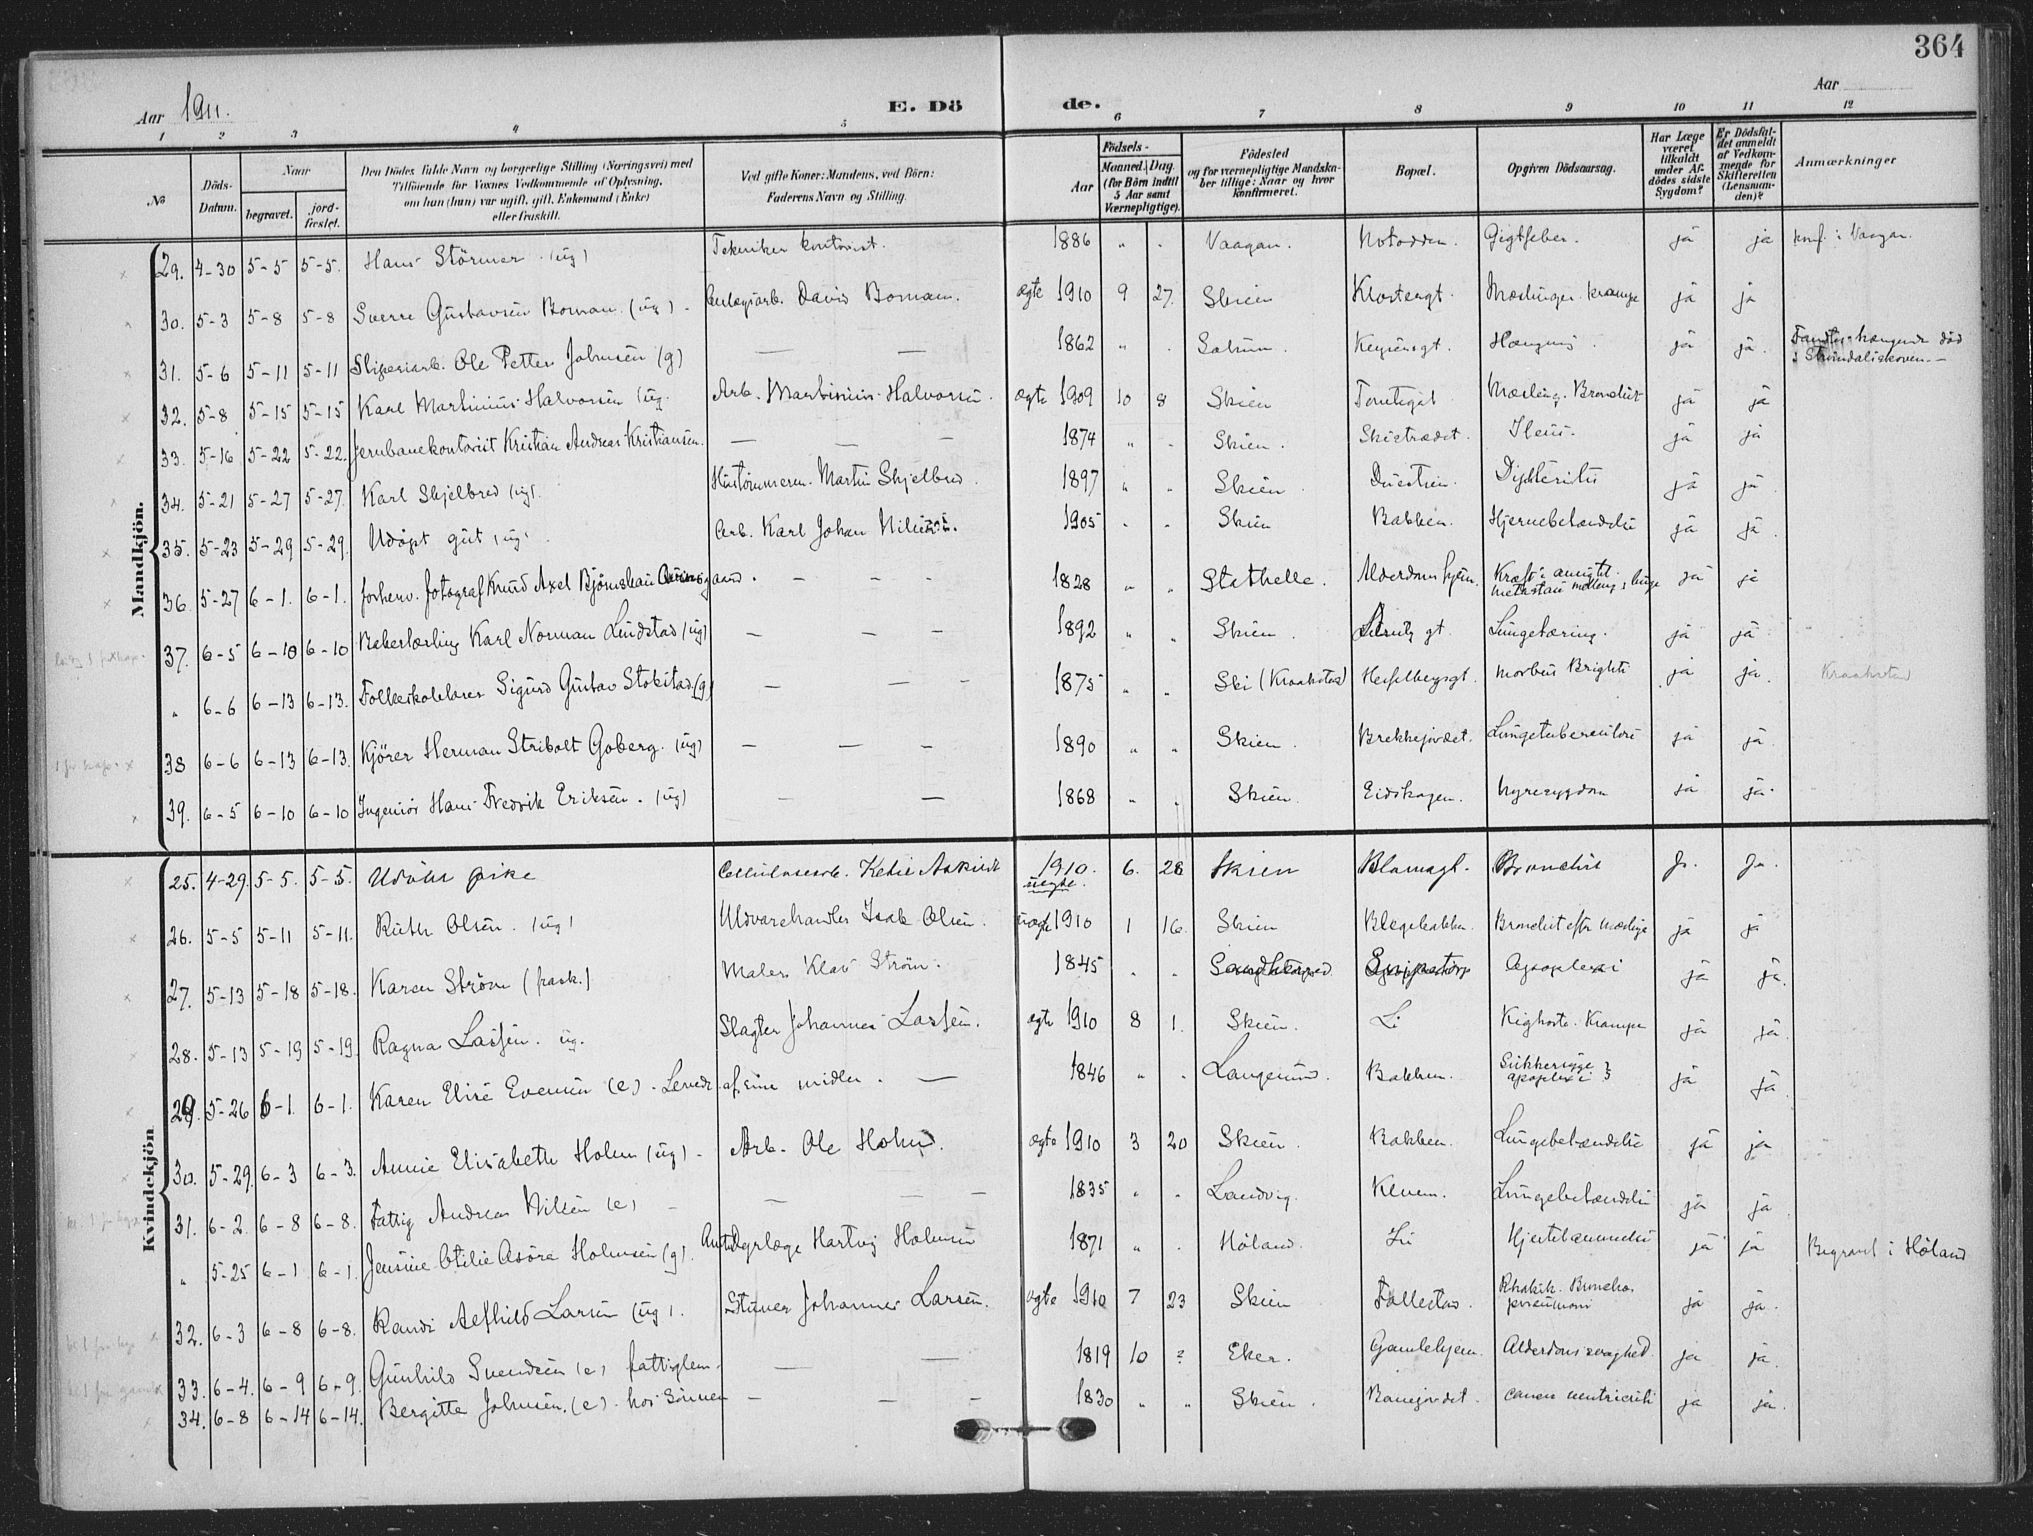 364
Aar 1911.
E. Dö de.
Aar
1 2 3 4 5 6 7 8 9 10 11 12
№
Döds-Datum.
Naar
begravet.
jord-fæstet.
Den Dödes fulde Navn og borgerlige Stilling (Næringsvei) med
Tilföiende for Voxnes Vedkommende af Oplysning,
om han (hun) var ugift, gift, Enkemand (Enke)
eller fraskilt.
Ved gifte Koner: Mandens, ved Börn:
Faderens Navn og Stilling.
Födsels-
Aar
Maaned. Dag.
(for Börn indtil
5 Aar samt
Værnepligtige).
Födested
og for værnepligtige Mandska-
ber tillige: Naar og hvor
konfirmeret.
Bopæl.
Opgiven Dödsaarsag.
Har Læge
været
tilkaldt
under Af-
dödes sidste
Sygdom?
Er Dödsfal-
det anmeldt
af Vedkom-
mende for
Skifteretten
(Lensman-
den)?
Anmærkninger
Mandkjön.
29. 4-30 5-5 5-5. Hans Störmer (ug) Tekniker kontorist. 1886 " " Vaagan. Notodden. Gigtfeber. ja ja konf. i Vaagan.
30. 5-3 5-8 5-8 Sverre Gustavsen Boman (ug) - David Boman. ægte 1910 9 27. Skien Klostergt. Mæslinger. krampe ja ja
31. 5-6 5-11 5-11 Sliperiarb. Ole Petter Johnsen (g) — — 1862 " " Keysersgt. Hængning. ja ja. hængende död
32. 5-8 5-15 5-15 Karl Martinius Halvorsen (ug. Arb. Martinius Halvorsen. ægte 1909 10 8 Skien Bronchit ja ja
33. 5-16 5-22 5-22. Jernbanekontorist Kristian Andreas Kristiansen. — — — 1874 " " Skien. Skistrædet. Ileus. ja ja
34. 5-21 5-27 5-27. Karl Skjelbred (ug). Martin Skjelbred. 1897 " " Skien Duestien. Difteritis ja ja.
35. 5-23 5-29 5-29. Udöpt gut (ug) Arb. Karl Johan Nilsen. 1905 " " Skien Bakken. Hjernebetændelse ja ja.
36. 5-27 6-1. 6-1. forhenv. fotograf Knud Axel - - - 1828 " " Stathelle. Alderdomshjem. Kræft i ja ja
37. 6-5 6-10 6-10 Bakerlærling Karl Norman Lindstad (ug) — — — 1892 " " Skien. gt. Lungetæring. ja ja
" 6-6 6-13 6-13. Folkeskolelærer Sigurd Gustav Stokstad. (g) - - - 1875 " " Ski (Kraakstad) Hesselbergsgt. Morbus Brighti ja ja. Kraakstad
38 6-6 6-13 6-13. Kjörer Herman Stribolt Goberg. (ug) — — - 1890 " " Skien. Brekkejordet. Lungetuberculose ja ja.
39. 6-5 6-10 6-10 Ingeniör Hans Fredrik Eriksen. (ug) - — 1868 " " Skien. Eidskogen. Nyresygdom ja ja.
Kvindekjön
25. 4-29. 5-5. 5-5. Udöbt pike Cellulosearb. Ketil Askildt 1910. uegte. 6. 28 Skien Blomsgt. Bronchit Ja. Ja.
26. 5-5 5-11 5-11. Ruth Olsen. (ug) Uldvarehandler Isak Olsen. uægte 1910 1 16. Skien Blegebakken. Bronchit efter mæslinge ja ja
27. 5-13 5-18 5-18. Karen Ström (frask.) Maler Klaus Ström. 1845 " " Apoplexi ja ja.
28. 5-13 5-19 5-19. Ragna Larsen. ug. Slagter Johannes Larsen. ægte 1910 8 1. Skien. Li Kighoste. Krampe ja ja.
29. 5-26 6-1. 6-1. Karen Elise Evensen (e). Levede af sine midler. — 1846 " " Langesund. Bakken. Sukkersyge apoplexi ja ja.
30. 5-29. 6-3 6-3. Annie Elisabeth Holm (ug) - Arb. Ole Holm. ægte 1910 3 20 Skien. Bakken. Lungebetændelse ja ja
31. 6-2. 6-8 6-8. Fattig Andrea Nilsen (e) - — — - 1835 " " Landvig. Kleven. Lungebetændelse ja ja.
" 5-25 6-1 6-1. Jensine Otilie Asöra Holmsen (g). Amtsdyrlæge Hartvig Holmsen 1871 " " Höland. Li Hjertelammelse ja ja Begravet i Höland
32. 6-3 6-8 6-8. Randi Larsen (ug). Stuver Johannes Larsen. ægte 1910 7 23 Skien Follestad. Rhakit. Bronchopneumoni ja ja.
33. 6-4. 6-9 6-9. Gunhild Svendsen (e) fattiglem. — — 1819 10 ? Eker. Gamlehjem. Alderdomssvaghed. ja ja.
34. 6-8 6-14 6-14. Bergitte Johnsen. (e) hos Sönnen — - - 1830 " " Skien. Banejordet. cancer ventriculi ja ja.